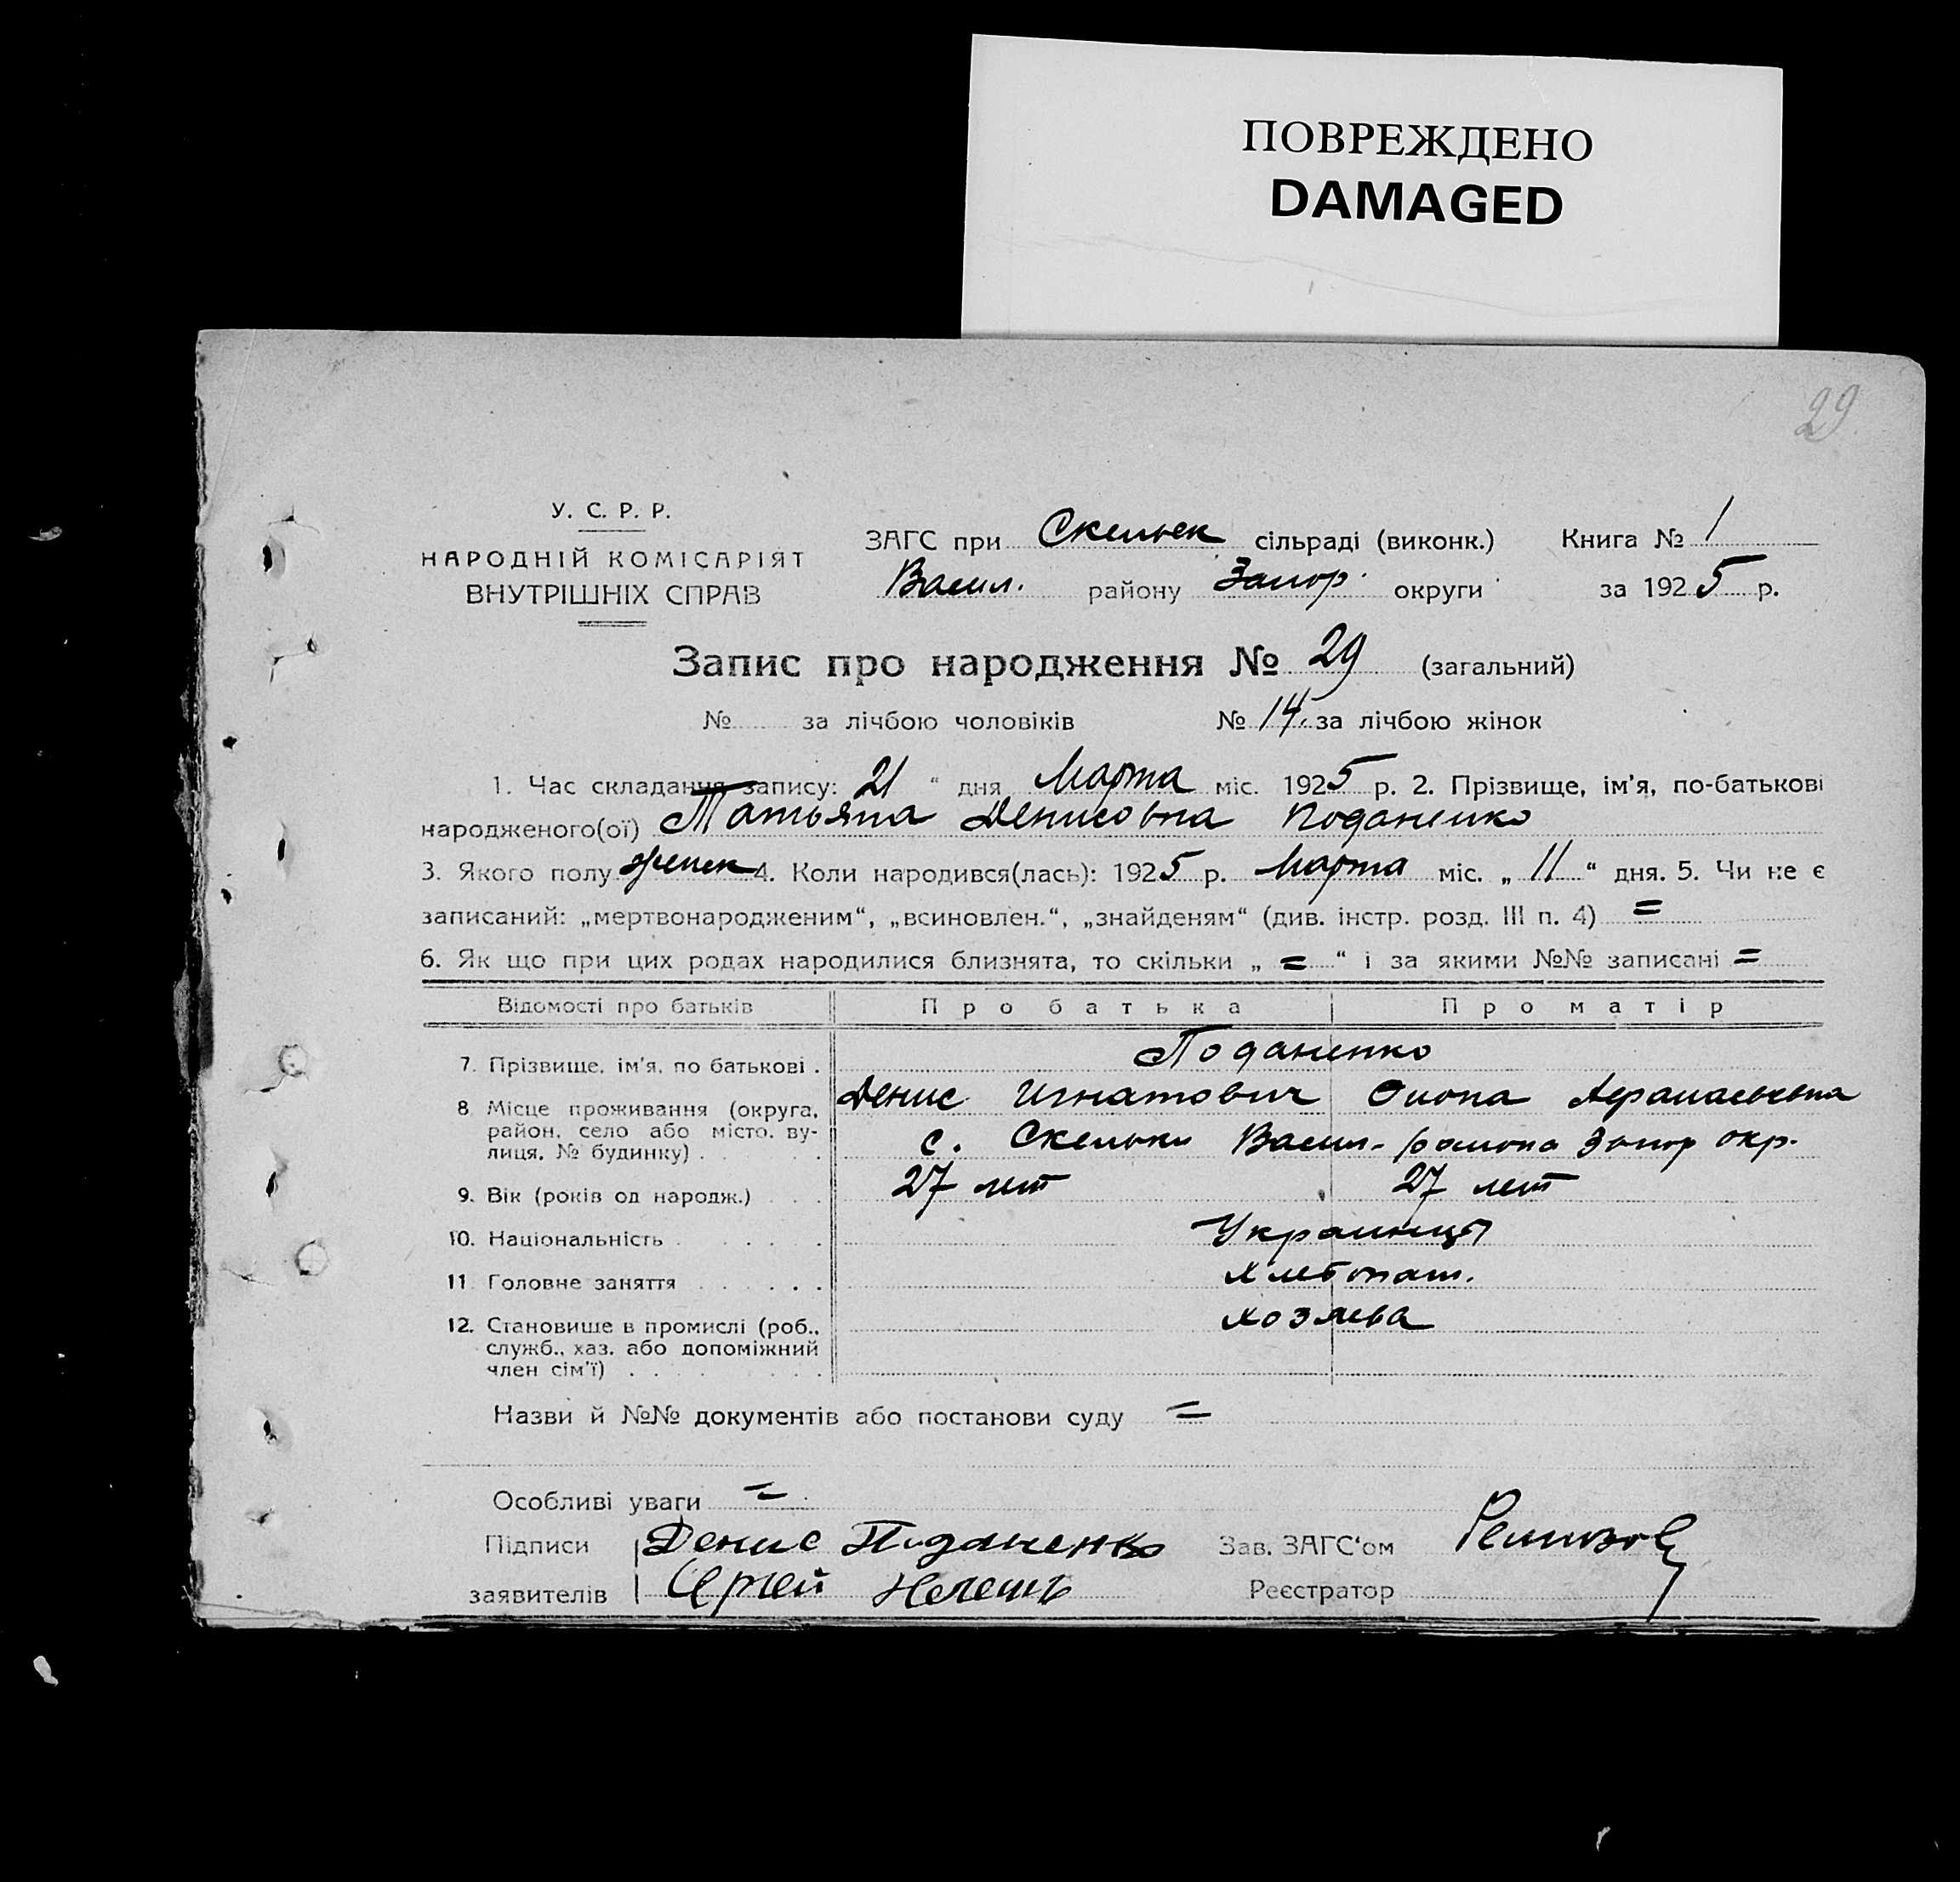 ПОВРЕЖДЕНО
DAMAGED
29
У. С. Р. Р.
НАРОДНІЙ КОМІСАРІЯТ
ВНУТРІШНІХ СПРАВ
ЗАГС при Скельек сільраді (виконк.) Книга № 1
Васил. району Запор. округи за 1925 р.
Запис про народження № 29 (загальний)
№ за лічбою чоловіків № 14. за лічбою жінок
1. Час складання запису: 21 " дня Марта міс. 1925 р. 2. Прізвище, ім'я, по-батькові
народженого(ої) Татьяна Денисовна Поданенко
3. Якого полу женск 4. Коли народився(лась): 1925 р. Марта міс. „ 11 “ дня. 5. Чи не є
записаний: „мертвонародженим“, „всиновлен.“, „знайденям“ (див. інстр. розд. III п. 4) =
6. Як що при цих родах народилися близнята, то скільки „ = “ і за якими №№ записані =
Відомості про батьків Про батька Про матір
7. Прізвище, ім'я, по батькові . Поданенко
Денис Игнатович
8. Місце проживання (округа, район, село або місто, ву-
лиця, № будинку) . . с. Скельки Васил. района Запор окр.
9. Вік (років од народж.) . . 27 лет 27 лет
10. Національність . . . . . Украинцы
11. Головне заняття . . . . . Хлебопаш.
12. Становище в промислі (роб., Хозяева
служб., хаз. або допоміжний
член сім'ї) . . . . .
Назви й №№ документів або постанови суду =
Особливі уваги =
Підписи Денис Поданенко Зав. ЗАГС'ом
заявителів Реєстратор